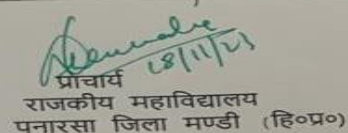 18/11/23
प्राचार्य
राजकीय महाविद्यालय
पनारसा जिला मण्डी (हि०प्र०)